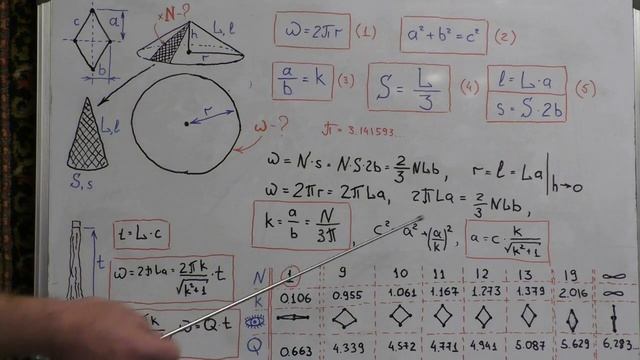 c
a
b
×N-?
L, l
h
r
L, l
S, s
r
ω-?
ω = 2πr (1)
a² + b² = c² (2)
a/b = k (3)
S = L/3 (4)
l = L·a
s = S·2b (5)
π = 3.141593...
ω = N·s = N·S·2b = 2/3 NLb, r = l = La | h→0
ω = 2πr = 2πLa, 2πLa = 2/3 NLb,
k = a/b = N/3π, c² a² + (a/k)², a = c· k/√k²+1
t = L·c
t
ω = 2πLa = 2πk/√k²+1 · t
= Q·t
N 1 9 10 11 12 13 19 ∞
k 0.106 0.955 1.061 1.167 1.273 1.379 2.016 ∞
Q 0.663 4.339 4.572 4.771 4.941 5.087 5.629 6.283...